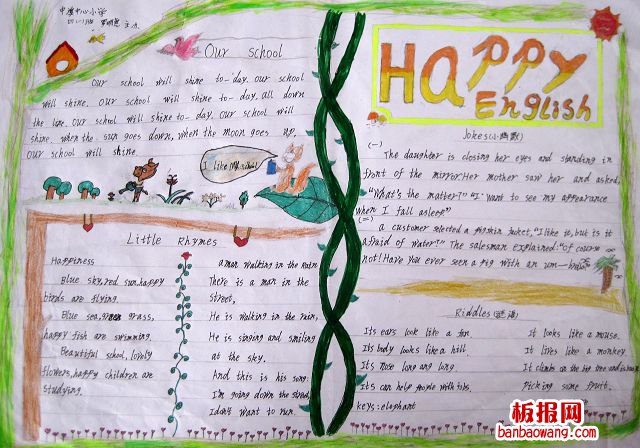 中 中心小学
Our school
Our school will shine to-day. Our school
will shine. Our school will shine to-day, all down
the lane. Our school will shine to-day. Our school will
shine. when the sun goes down, when the moon goes up,
Our school will shine.
I like my school
Little Rhymes
Happiness
Blue sky, red sun, happy
birds are flying.
Blue sea, green grass,
happy fish are swimming.
Beautiful school, lovely
flowers, happy children are
studying.
a man walking in the rain
There is a man in the
street,
He is walking in the rain,
He is singing and smiling
at the sky.
And this is his song:
I'm going down the street,
I don't want to run.
HAPPY
English
Jokes(小幽默)
(一)
The daughter is closing her eyes and standing in
front of the mirror. Her mother saw her and asked,
"What's the matter?" "I want to see my appearance
when I fall asleep"
(二)
a customer selected a pigskin jacket, "I like it, but is it
afraid of water?" The salesman explained: "Of course
not! Have you ever seen a pig with an um-brella
Riddles(谜语)
Its ears look like a fan.
Its body looks like a hill.
Its nose long ang long.
Its can help people with jobs.
keys: elephant
It looks like a mouse.
It lives like a monkey.
It climbs on the big tree and is
Picking some fruit.
板报网
banbaowang.com